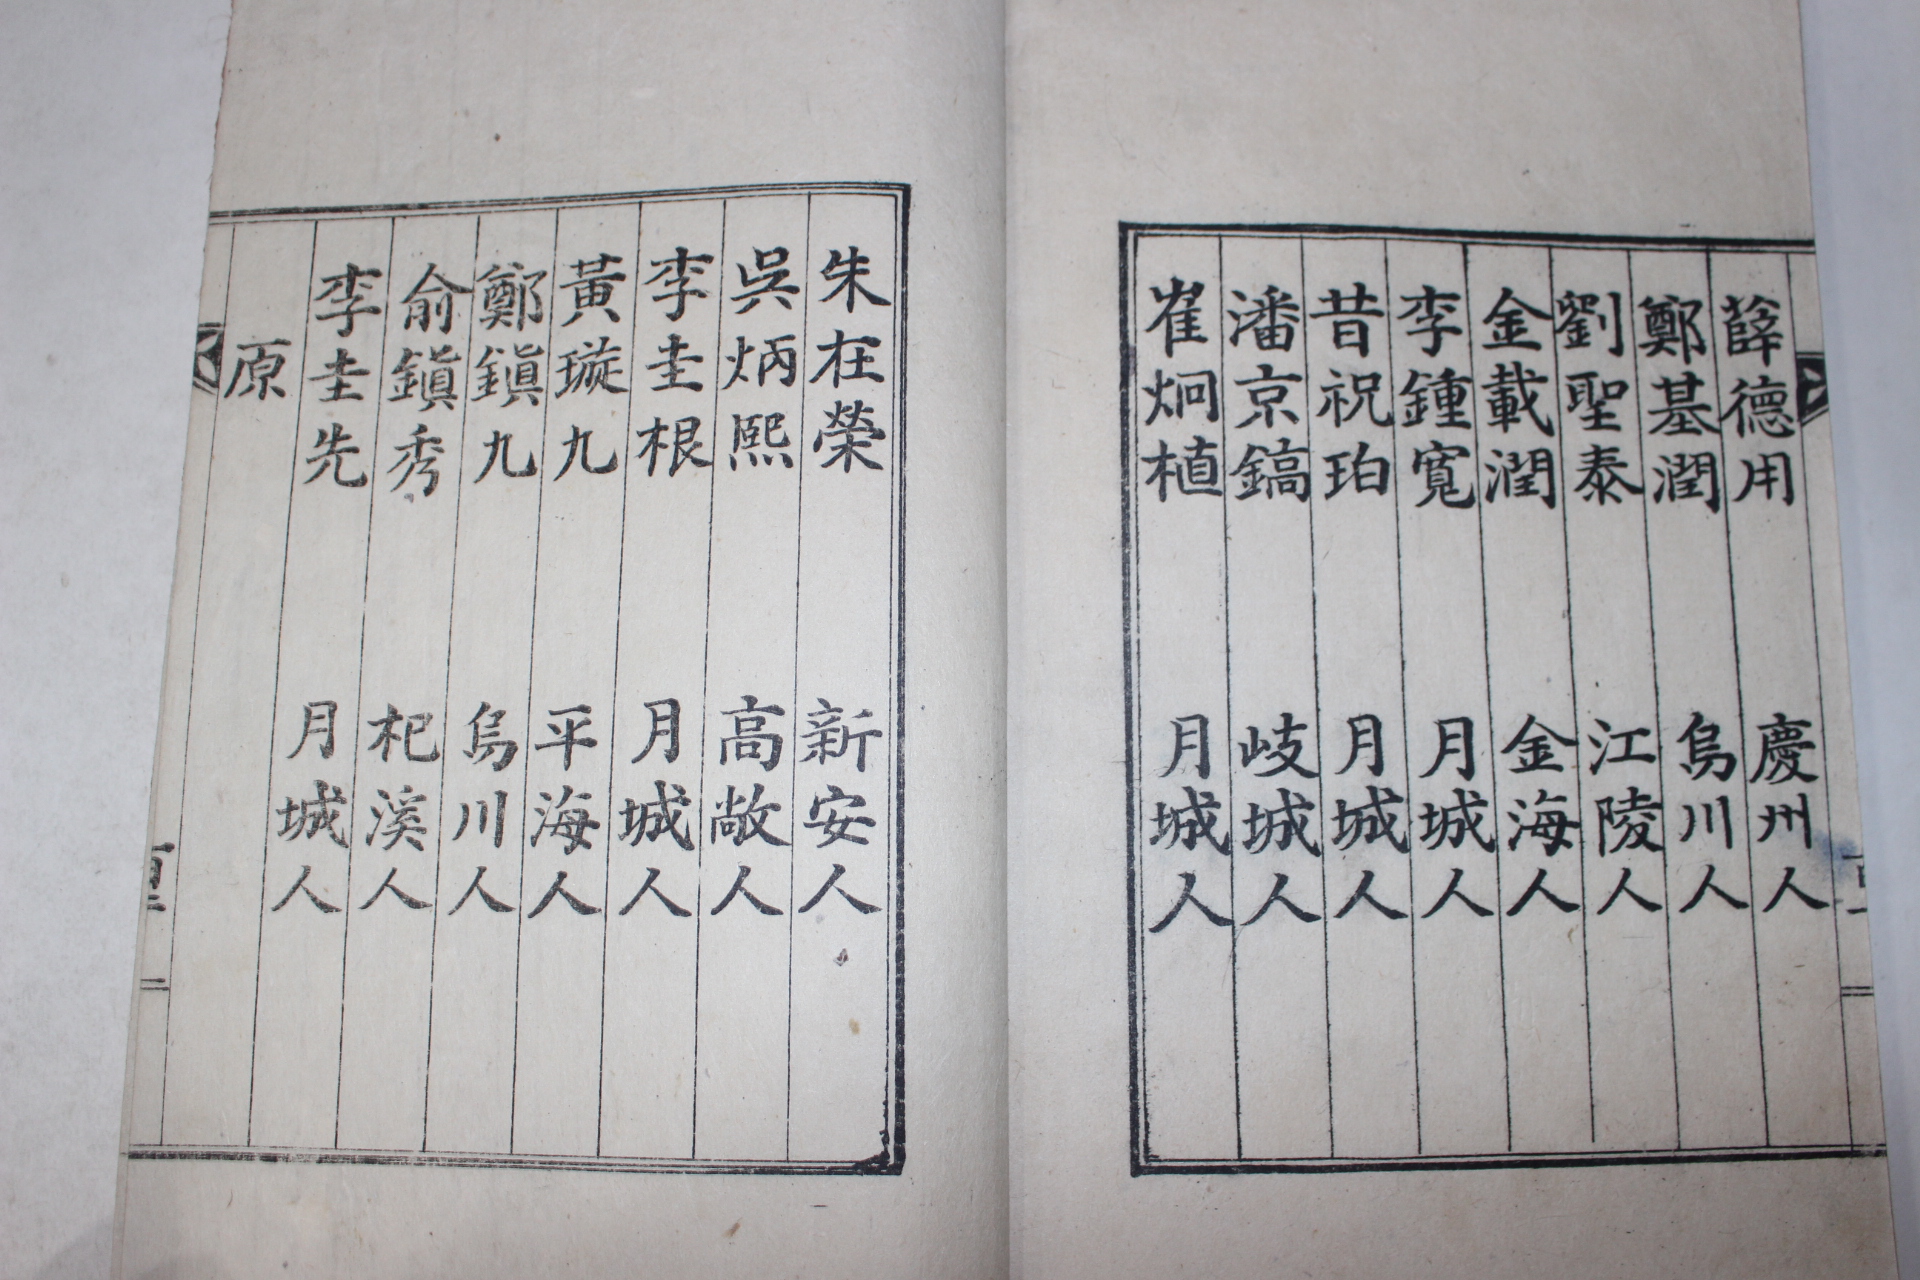 薛德用 慶州人
鄭基潤 烏川人
劉聖泰 江陵人
金載潤 金海人
李鍾寬 月城人
昔祝珀 月城人
潘京鎬 岐城人
崔炯植 月城人
朱在榮 新安人
吳炳熙 高敞人
李圭根 月城人
黃璇九 平海人
鄭鎮九 烏川人
俞鎮秀 杞溪人
李圭先 月城人
原
二